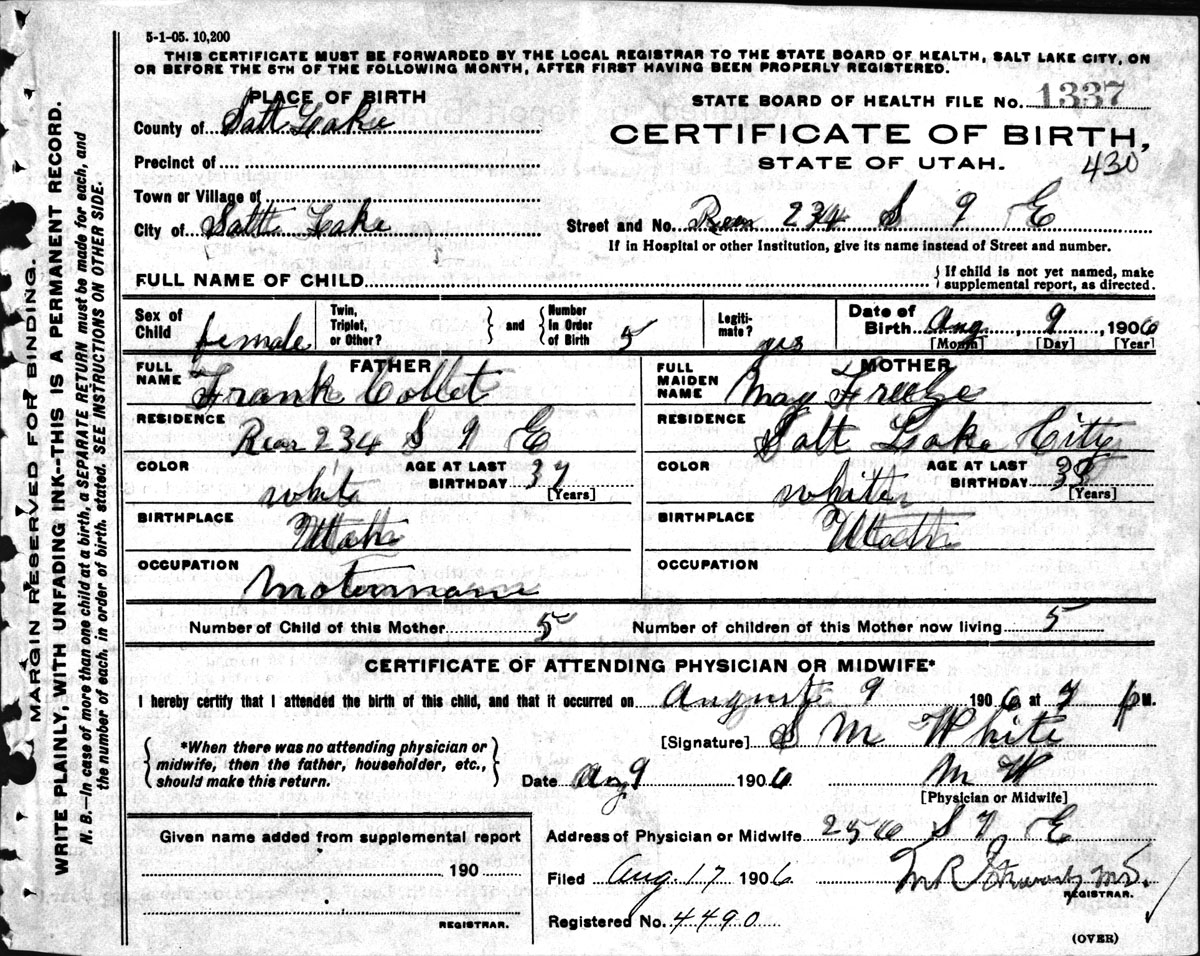 5-1-05. 10,200
THIS CERTIFICATE MUST BE FORWARDED BY THE LOCAL REGISTRAR TO THE STATE BOARD OF HEALTH, SALT LAKE CITY, ON
OR BEFORE THE 5TH OF THE FOLLOWING MONTH, AFTER FIRST HAVING BEEN PROPERLY REGISTERED.
MARGIN RESERVED FOR BINDING.
WRITE PLAINLY, WITH UNFADING INK--THIS IS A PERMANENT RECORD.
N. B.—In case of more than one child at a birth, a SEPARATE RETURN must be made for each, and
the number of each, in order of birth, stated. SEE INSTRUCTIONS ON OTHER SIDE.
PLACE OF BIRTH
County of Salt Lake
Precinct of
Town or Village of
City of Salt Lake
STATE BOARD OF HEALTH FILE NO. 1337
CERTIFICATE OF BIRTH,
STATE OF UTAH.
430
Street and No. Rear 234 S 9 E
If in Hospital or other Institution, give its name instead of Street and number.
FULL NAME OF CHILD
If child is not yet named, make
supplemental report, as directed.
Sex of Child female
Twin, Triplet, or Other?
and
Number in Order of Birth 5
Legiti-mate? yes
Date of Birth Aug, 9, 1906
[Month] [Day] [Year]
FATHER
FULL NAME Frank Collet
RESIDENCE
Rear 234 S 9 E
COLOR white
AGE AT LAST BIRTHDAY 37
[Years]
BIRTHPLACE
Utah
OCCUPATION
Motorman
MOTHER
FULL MAIDEN NAME May Freeze
RESIDENCE
Salt Lake City
COLOR white
AGE AT LAST BIRTHDAY 33
[Years]
BIRTHPLACE
Utah
OCCUPATION
Number of Child of this Mother 5 Number of children of this Mother now living 5
CERTIFICATE OF ATTENDING PHYSICIAN OR MIDWIFE*
I hereby certify that I attended the birth of this child, and that it occurred on August 9 1906 at 7 p M.
*When there was no attending physician or
midwife, then the father, householder, etc.,
should make this return.
[Signature] S M White
Date Aug 9 1906 M W
[Physician or Midwife]
Given name added from supplemental report
190
REGISTRAR.
Address of Physician or Midwife 256 S 7 E
Filed Aug. 17 1906
REGISTRAR.
Registered No. 4490
(OVER)